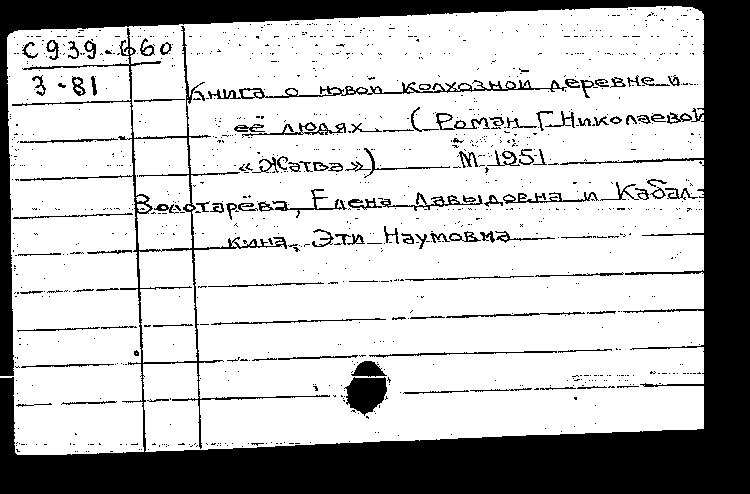 С939-660
З-81
Книга о новой колхозной деревне и
её людях. (Роман Г.Николаевой
«Жатва») М, 1951
Золотарёва, Елена Давыдовна и Кабал-
кина, Эти Наумовна